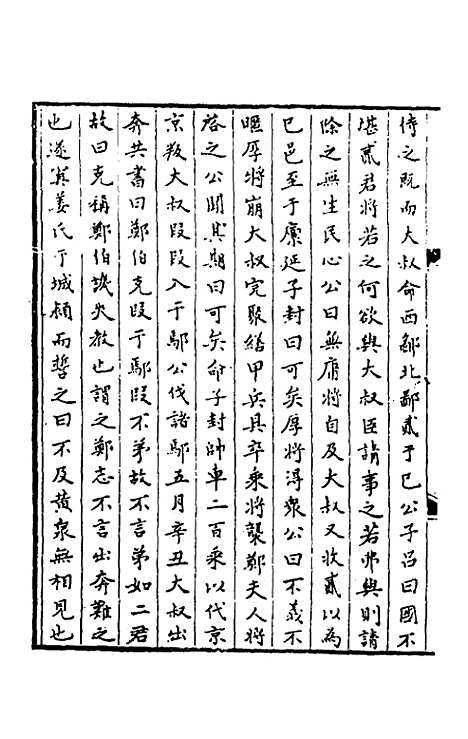 待之既而大叔命西鄙北鄙貳于己公子呂曰國不
堪貳君將若之何欲與大叔臣請事之若弗與則請
除之無生民心公曰無庸將自及大叔又收貳以為
己邑至于廩延子封曰可矣厚將得衆公曰不義不
暱厚將崩大叔完聚繕甲兵具卒乘將襲鄭夫人將
啓之公聞其期曰可矣命子封帥車二百乘以伐京
京叛大叔段段入于鄢公伐諸鄢五月辛丑大叔出
奔共書曰鄭伯克段于鄢段不弟故不言弟如二君
故曰克稱鄭伯譏失教也謂之鄭志不言出奔難之
也遂寘姜氏于城潁而誓之曰不及黃泉無相見也